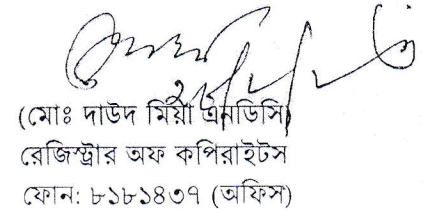 (মোঃ দাউদ মিয়া এনডিসি)
রেজিস্ট্রার অফ কপিরাইটস
ফোন: ৮১৮১৪৩৭ (অফিস)